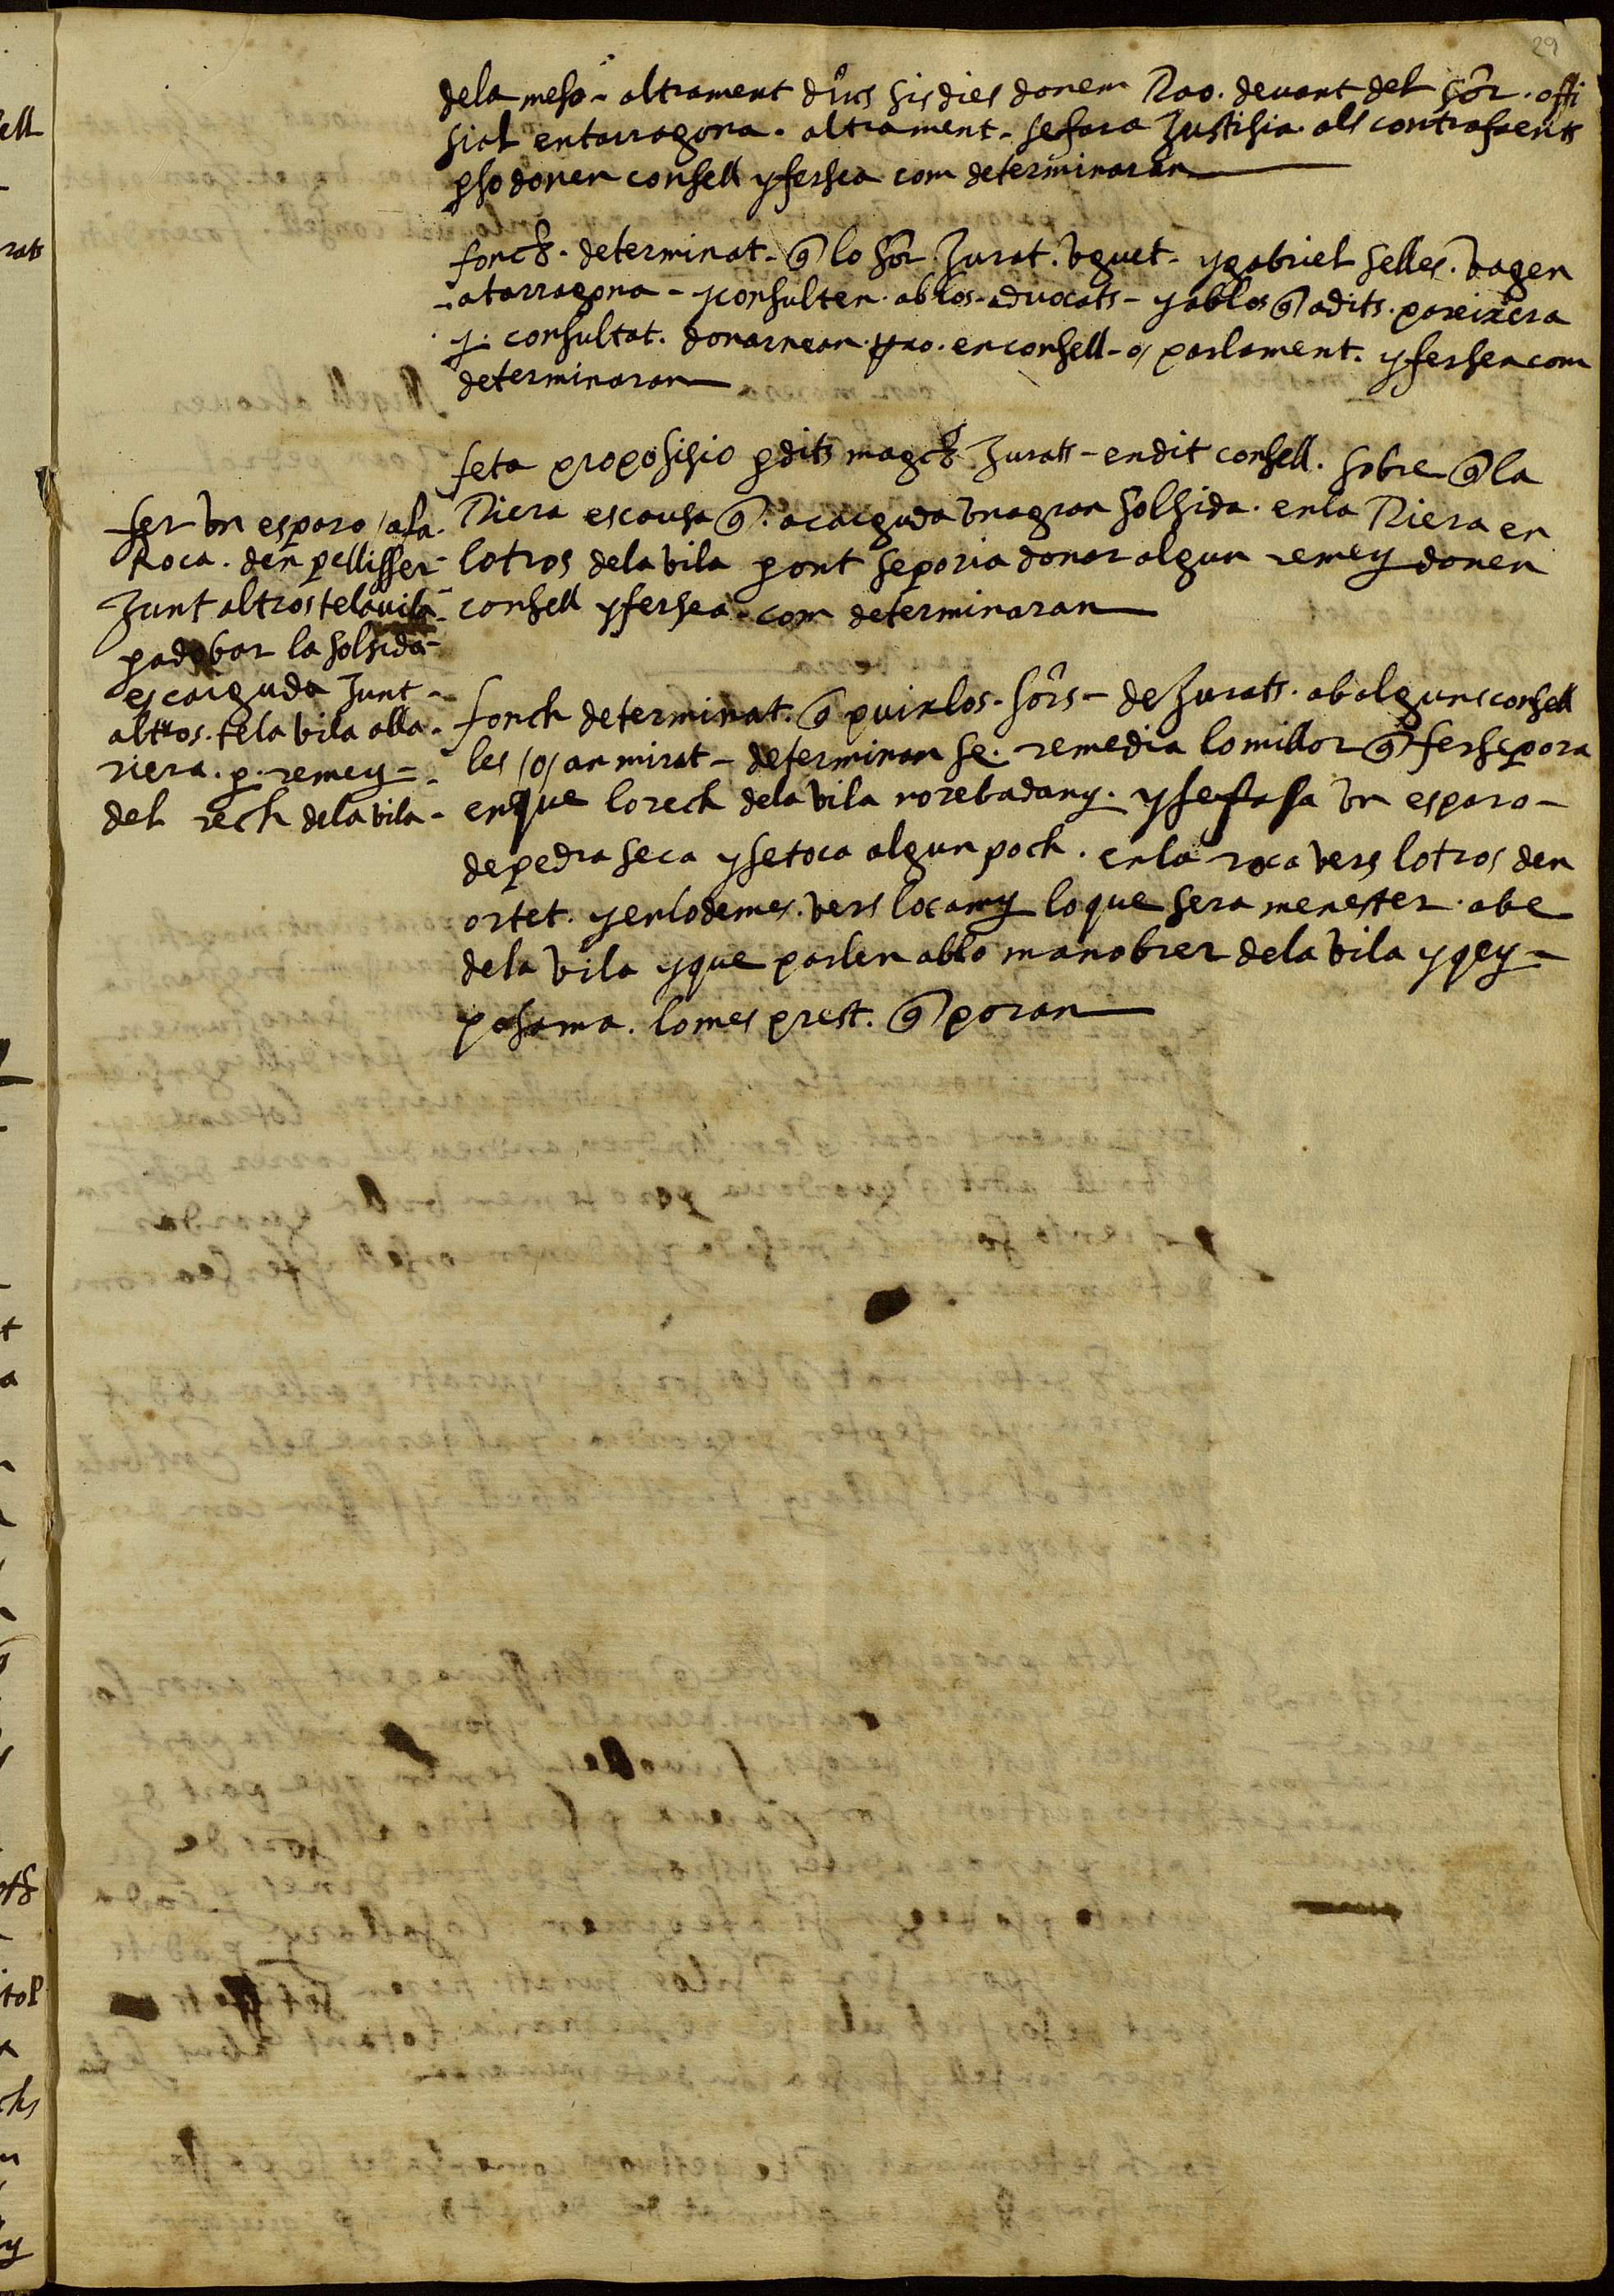 29
dela mesa - altrament dīns sis dies donen Rao. devant del Sor. offi
sial entarragona. altrament - se fara Justisia. als contrafaents
p̱ so donen consell y fersea com determinaran
fonch. determinat - q̄ lo Sor. Jurat. Vguet - y gabriel selles. vagen
atarragona - y consulten. ab los advocats - y ab los q̄ adits. pareixera
y. consultat. donarnean. rao. en consell - o/ parlament. y fersea com
determinaran
feta proposisio p̱ dits magch. Jurats - en dit consell. sobre q̄ la
Riera es causa q̄. a caiguda vna gran solsida. en la Riera en
lo tros dela vila p̱ ont se poria donar algun remey donen
consell y fersea - com determinaran
fer vn esparo / a la
Roca. den pellisser -
Junt al tros tela vila -
p̱ adobar la solsida -
es caiguda Junt -
al tros. tela vila alla -
riera. p̱. remey -
del rech dela vila -
fonch determinat. q̄ puix los. Sors - de Jurats. ab alguns consell
les /o/ an mirat - determinan se. remedia lo millor q̄ fer se pora
en que lo rech dela vila no reba dany. y se fasa vn esparo -
de pedra seca y se toca algun poch. en la roca vers lo tros den
ortet. y en lo demes. vers lo camy lo que sera menester. abe
dela vila y que parlen ab lo manobrer dela vila y qey -
posa ma. lo mes prest. q̄ poran